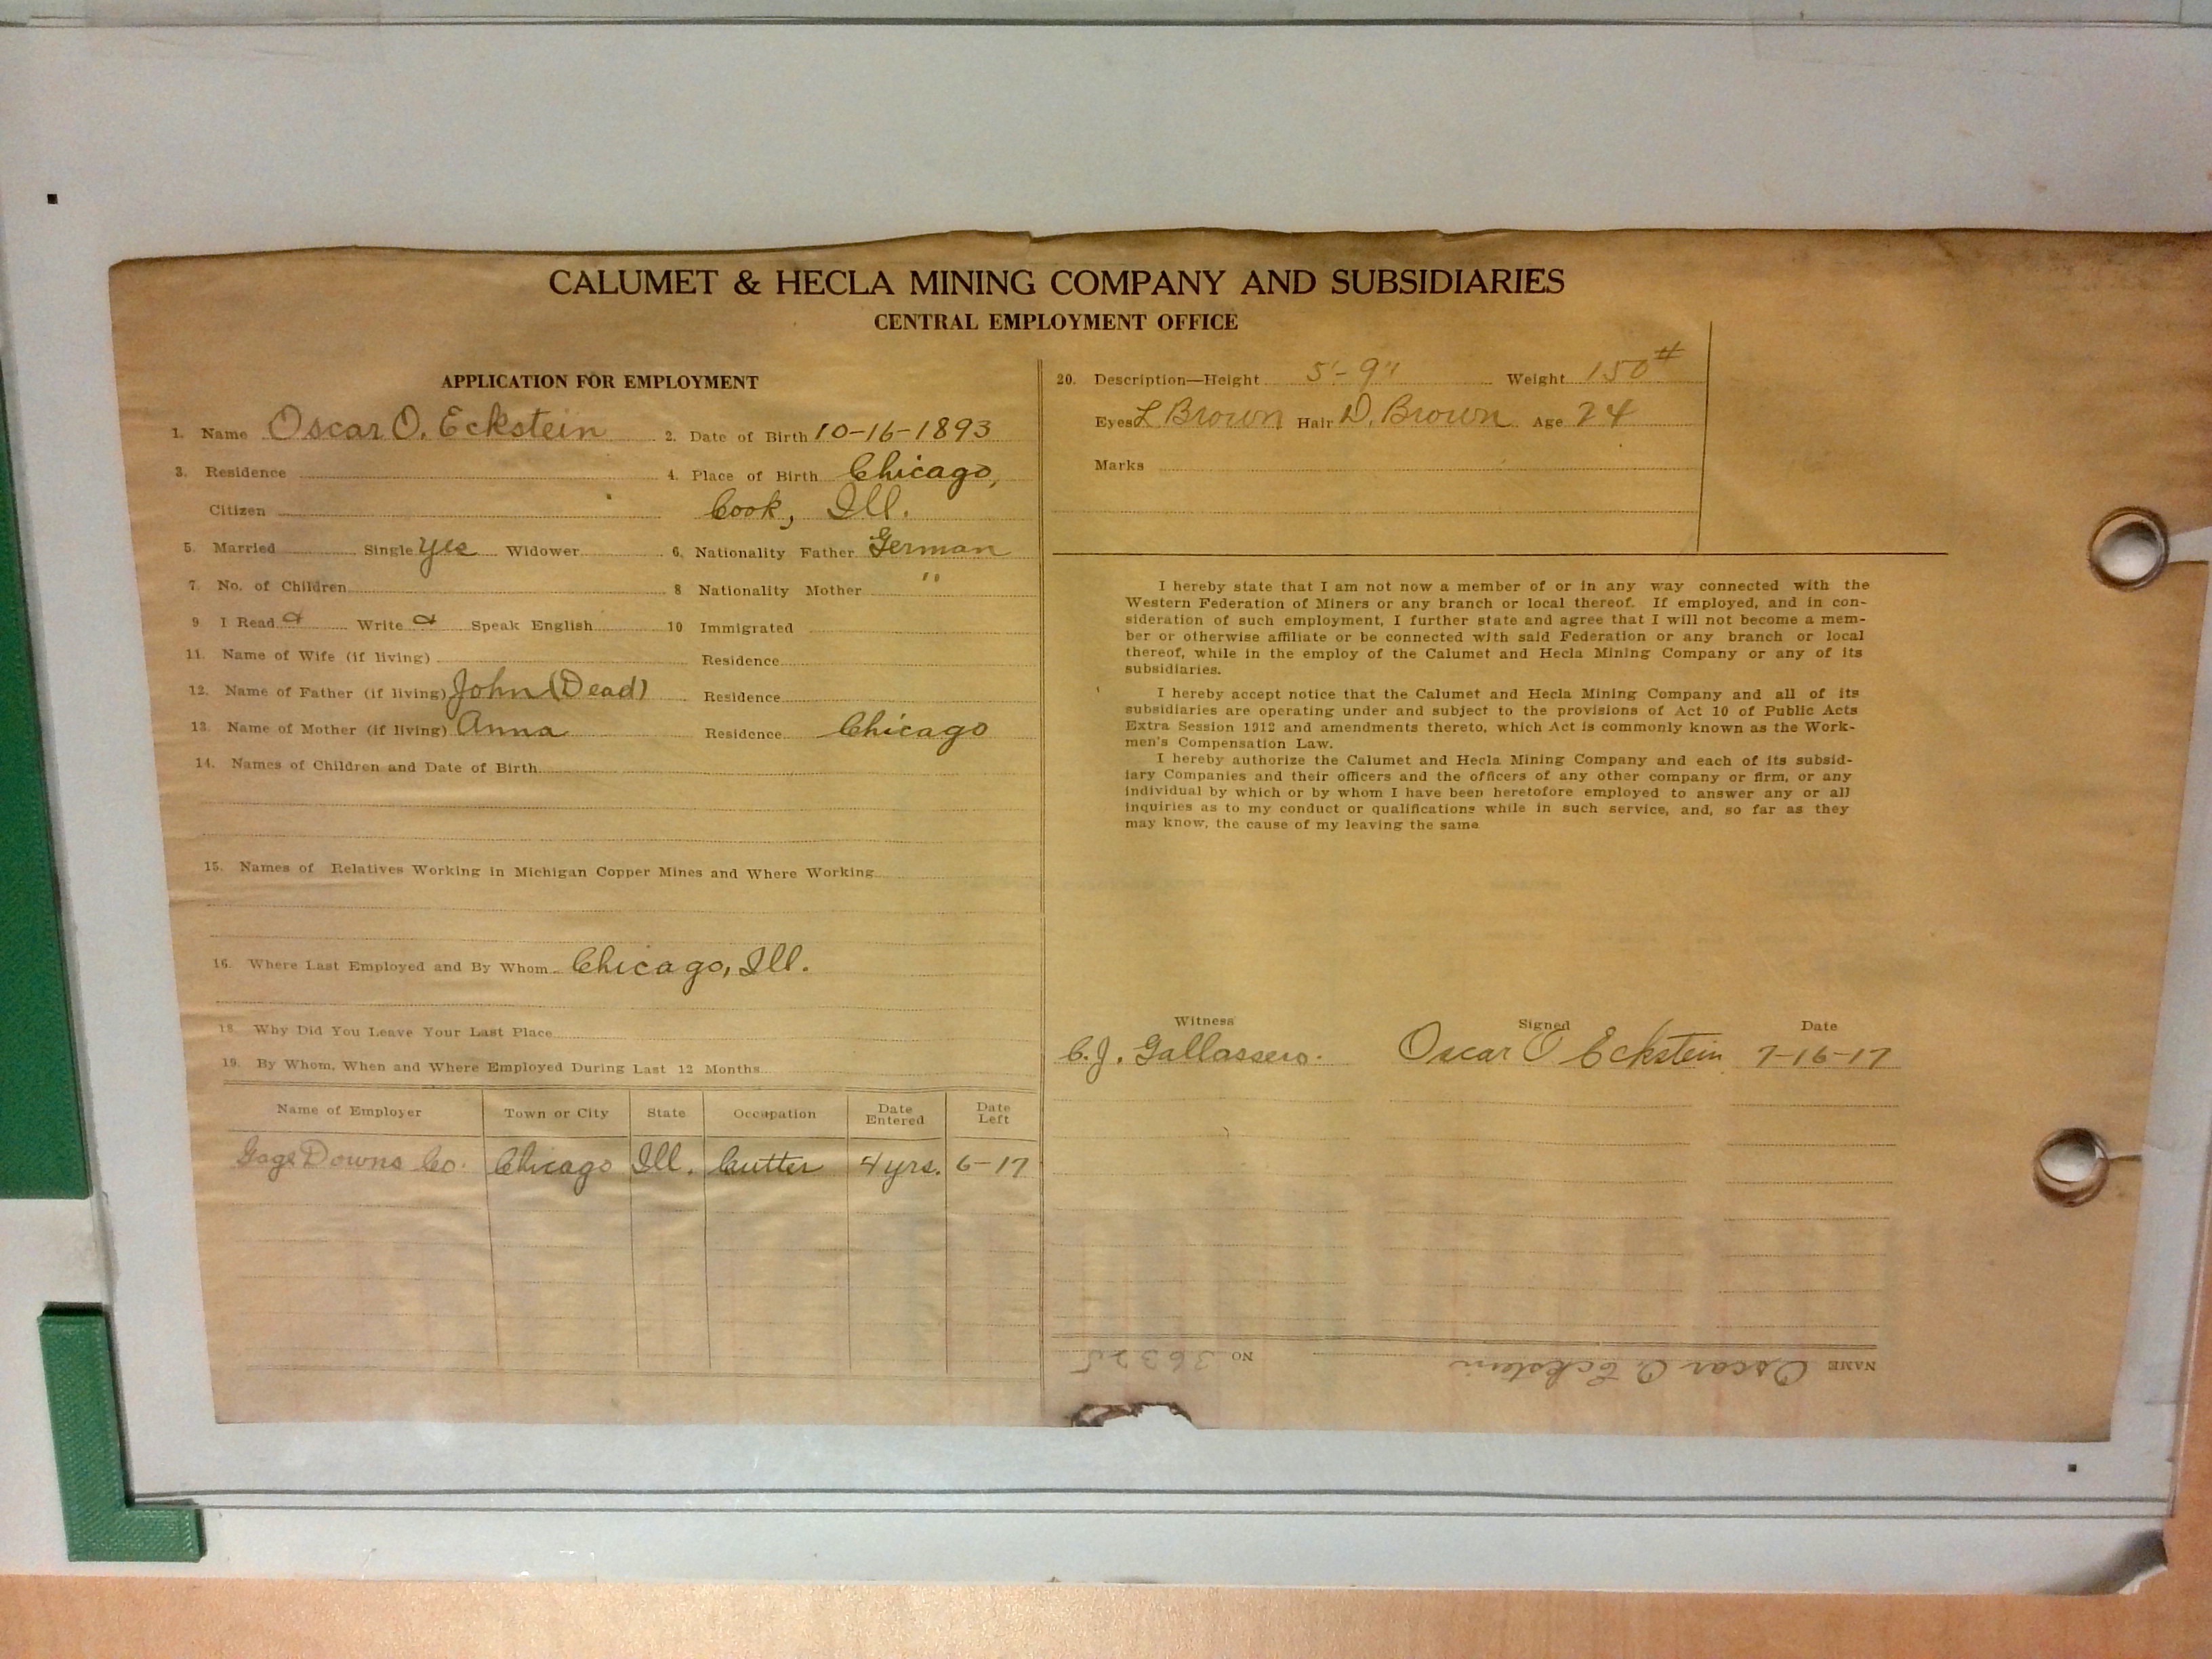 CALUMET & HECLA MINING COMPANY AND SUBSIDIARIES
CENTRAL EMPLOYMENT OFFICE
APPLICATION FOR EMPLOYMENT
1. Name Oscar O. Eckstein 2. Date of Birth 10-16-1893
3. Residence 4. Place of Birth Chicago,
Citizen Cook, Ill.
5. Married Single Yes Widower 6. Nationality Father German
7. No. of Children 8 Nationality Mother "
9. I Read Write Speak English 10 Immigrated
11. Name of Wife (if living) Residence
12. Name of Father (if living) John (Dead) Residence
13. Name of Mother (if living) Anna Residence Chicago
14. Names of Children and Date of Birth
15. Names of Relatives Working in Michigan Copper Mines and Where Working
16. Where Last Employed and By Whom Chicago, Ill.
18. Why Did You Leave Your Last Place
19. By Whom, When and Where Employed During Last 12 Months
Name of Employer Town or City State Occupation Date Entered Date Left
Gage Downs Co. Chicago Ill. Cutter 4 yrs. 6-17
20. Description—Height 5'-9" Weight 150#
Eyes L Brown Hair D. Brown Age 24
Marks
I hereby state that I am not now a member of or in any way connected with the
Western Federation of Miners or any branch or local thereof. If employed, and in con-
sideration of such employment, I further state and agree that I will not become a mem-
ber or otherwise affiliate or be connected with said Federation or any branch or local
thereof, while in the employ of the Calumet and Hecla Mining Company or any of its
subsidiaries.
I hereby accept notice that the Calumet and Hecla Mining Company and all of its
subsidiaries are operating under and subject to the provisions of Act 10 of Public Acts
Extra Session 1912 and amendments thereto, which Act is commonly known as the Work-
men's Compensation Law.
I hereby authorize the Calumet and Hecla Mining Company and each of its subsid-
iary Companies and their officers and the officers of any other company or firm, or any
individual by which or by whom I have been heretofore employed to answer any or all
inquiries as to my conduct or qualifications while in such service, and, so far as they
may know, the cause of my leaving the same
Witness Signed Date
C. J. Gallassero. Oscar O Eckstein 7-16-17
NAME Oscar O. Eckstein NO 36325